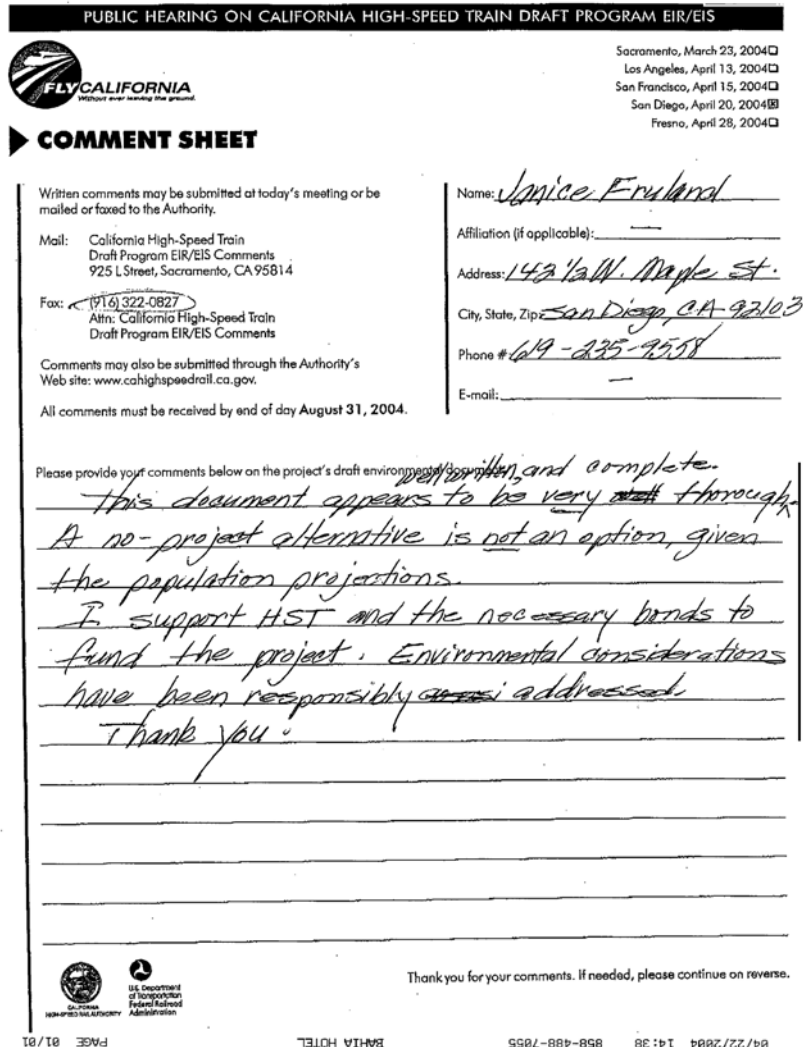 PUBLIC HEARING ON CALIFORNIA HIGH-SPEED TRAIN DRAFT PROGRAM EIR/EIS
Sacramento, March 23, 2004☐
Los Angeles, April 13, 2004☐
San Francisco, April 15, 2004☐
San Diego, April 20, 2004☒
Fresno, April 28, 2004☐
FLY CALIFORNIA
Without ever leaving the ground.
COMMENT SHEET
Written comments may be submitted at today's meeting or be
mailed or faxed to the Authority.
Mail: California High-Speed Train
Draft Program EIR/EIS Comments
925 L Street, Sacramento, CA 95814
Fax: (916) 322-0827
Attn: California High-Speed Train
Draft Program EIR/EIS Comments
Comments may also be submitted through the Authority's
Web site: www.cahighspeedrail.ca.gov.
All comments must be received by end of day August 31, 2004.
Name: Janice Fruland
Affiliation (if applicable): —
Address: 142 1/2 W. Maple St.
City, State, Zip: San Diego, CA 92103
Phone # 619-235-9558
E-mail: —
Please provide your comments below on the project's draft environmental document:
well written, and complete.
This document appears to be very thorough,
A no-project alternative is not an option, given
the population projections.
I support HST and the necessary bonds to
fund the project. Environmental considerations
have been responsibly addressed.
Thank you.
CALIFORNIA
HIGH-SPEED RAIL AUTHORITY
U.S. Department
of Transportation
Federal Railroad
Administration
Thank you for your comments. If needed, please continue on reverse.
04/22/2004 14:38 858-488-7055 BAHIA HOTEL PAGE 01/01